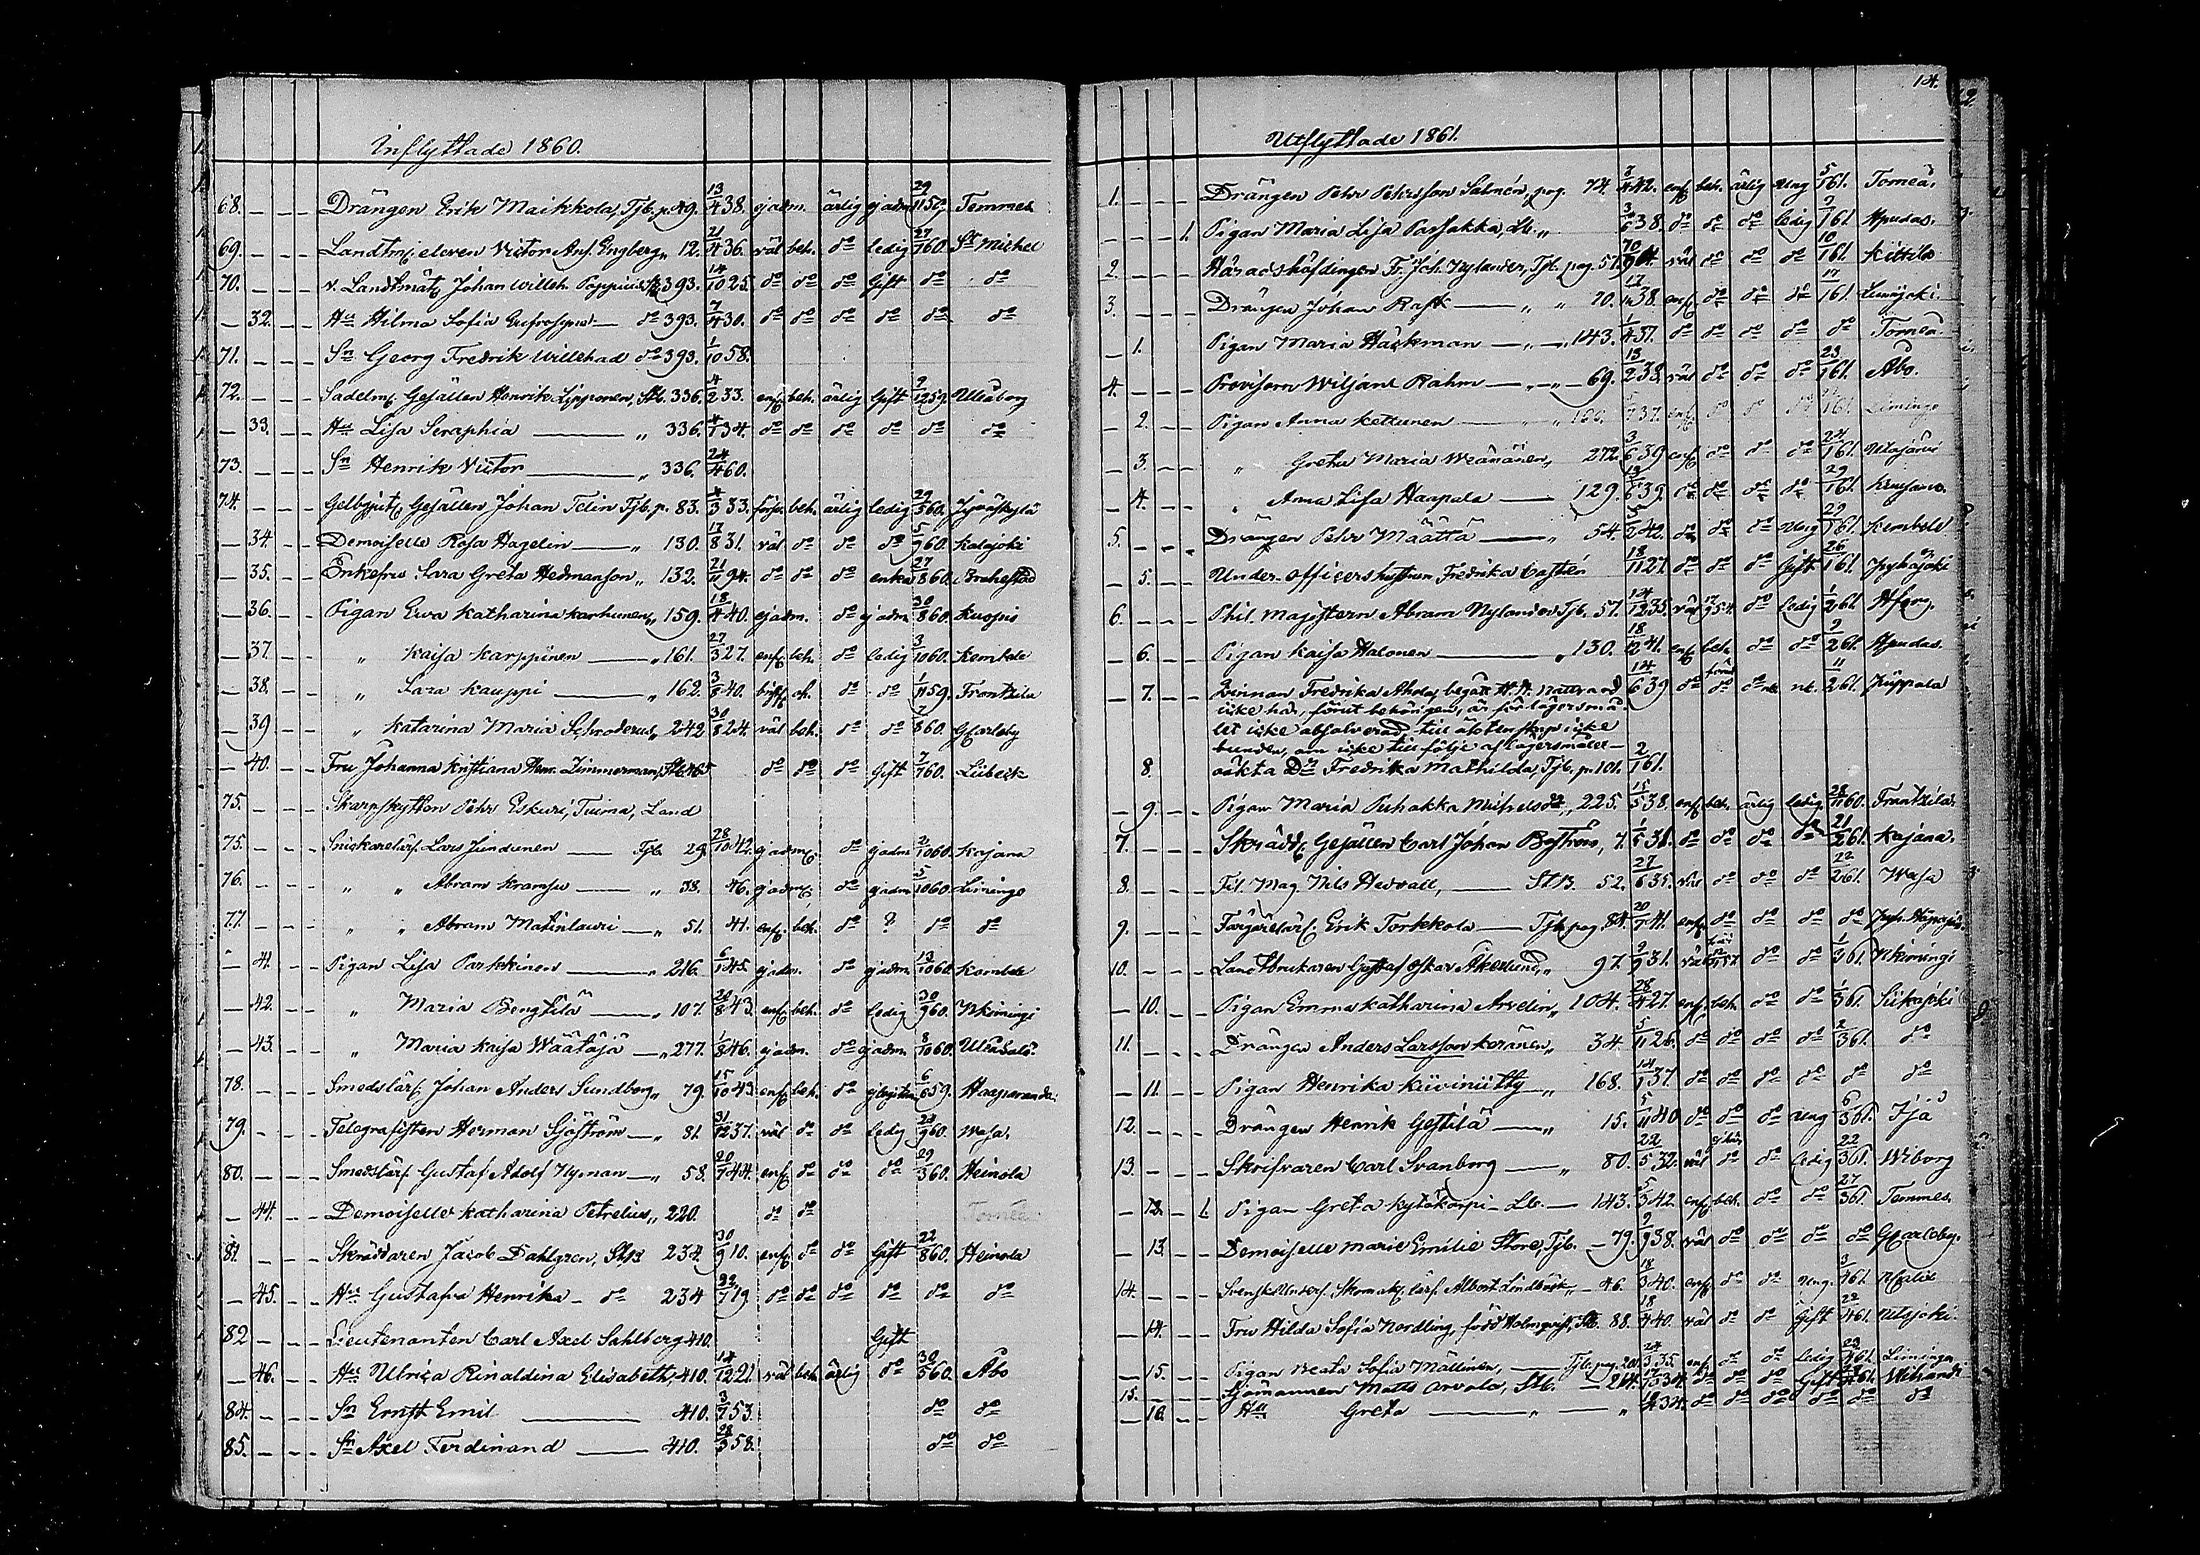 14.
Inflyttade 1860.
68. Drängen Erik Maikkola, Tjb. p. 49. 13/4 38. ej adm. ärlig ej adm. 29/11 59. Temmes
69. Landtm. eleven Victor Anf. Engberg " 12. 21/4 36. väl beh. do ledig 27/1 60. St Michel
70. v. Landtmät. Johan Willeh. Pappius 393. 14/10 25. do do do Gift do do
32. Hu Hilma Sofia Eufrosyne do 393. 7/4 30. do do do do do do
71. Sn Georg Fredrik Willehad do 393. 1/10 58.
72. Sadelm. Gesällen Henrik Lipponen, Stb. 336. 4/2 33. enf. beh. ärlig Gift 9/12 59. Uleåborg
33. Hu Lisa Seraphia " 336. 4/1 34. do do do do do do
73. Sn Henrik Victor " 336. 24/4 60.
74. Gelbgjut. Gesällen Johan Telin Tjb. p. 83. 4/3 33. försv. beh. ärlig ledig 29/5 60. Jyväskylä
34. Demoiselle Rosa Hagelin " 130. 17/8 31. väl do do do 5/7 60. Kalajoki
35. Enkefru Sara Greta Hedmanson " 132. 21/11 94. do do do enka 27/8 60. Brahestad
36. Pigan Ewa Katharina Karhunen " 159. 18/4 40. ej adm. do ej adm. 30/8 60. Kuopio
37. " Kaisa Karppinen " 161. 27/3 27. enf. beh. do ledig 3/10 60. Kembele
38. " Sara Kauppi " 162. 3/8 40. do do 1/11 59. Frantzila
39. " Katarina Maria Schroderus " 242. 30/8 24. väl beh. do do 7/8 60. GCarleby
40. Fru Johanna Kristiana Hen. Zimmerman, Stb. 465 do do do Gift 7/7 60. Lübeck
75. Skarpskytten Pehr Eskuri, Tuima, Land
75. Snickarelärl. Lars Jundunen Tjb. 29. 28/10 42. ej adm. do ej adm. 2/10 60. Kajana
76. " " Abram Kramsu " 38. 46. ej adm. do ej adm. 5/10 60. Limingo
77. " " Abram Matinlauri " 51. 41. enf. beh. do ? do do
41. Pigan Lisa Parkkinen " 216. 6/1 45. ej adm. do ej adm. 13/10 60. Kembele
42. " Maria Bengtilä " 107. 20/8 43. enf. beh. do ledig 30/9 60. Kiminge
43. " Maria Kaisa Wäätäjä " 277. 1/8 46. ej adm. do ej adm. 8/10 60. Uleåsalo
78. Smedslärl. Johan Anders Sundberg " 79. 15/10 43. enf. beh. do 6/6 59. Haaparanda
79. Telegrafisten Herman Sjöström " 81. 31/12 37. väl do do ledig 24/9 60. Wasa.
80. Smedslärl. Gustaf Adolf Nyman " 58. 20/7 44. enf. do do do 29/3 60. Heinola
44. Demoiselle Katharina Petrelius " 220. do do
81. Skräddaren Jacob Dahlgren, Stb 234. 30/9 10. enf. do do Gift 22/8 60. Heinola
45. Hu Gustafva Henrika do 234 22/7 19 do do do do do do
82. Lieutenanten Carl Axel Sahlberg 410. Gift
46. Hu Ulrica Rinaldina Elisabeth, 410. 14/12 21. väl beh. ärlig do 30/5 60. Åbo
84. Sn Ernst Emil 410. 3/7 53. do do
85. Sn Axel Ferdinand 410. 28/3 58. do do
Utflyttade 1861.
1. Drängen Pehr Pehrsson Salmén, pag. 74. 8/4 42. enf. beh. ärlig Ung 5/1 61. Torneå.
1. Pigan Maria Lisa Passakka, Lb. " 3/6 38. do do do ledig 9/1 61. Hpudas.
2. Häradshöfdingen Fr. Joh. Nylander, Tjb. pag. 57. väl do do do 10/1 61. Kittilä
3. Drängen Johan Rask " " 70. 38. enf. do do do 17/1 61. Limijoki.
1. Pigan Maria Häckman " 143. 1/4 37. do do do do do Torneå.
4. Provisorn Wiljam Rahm " 69. 13/2 38. väl do do do 23/1 61. Åbo.
2. Pigan Anna Kettunen " 37. enf. do do do 61. Limingo
3. " Greta Maria Weänänen " 272. 3/6 39 enf. do do do 24/1 61. Utajärvi
4. " Anna Lisa Haapala 129. 13/6 39. do do do do 29/1 61.
5. Drängen Pehr Määttä " 54. 5/2 42. do do do Ung 29/1 61. Kembele
5. Under officershustrun Fredrika Castrén 18/11 27. do do do Gift 26/1 61. Pyhäjoki
6. Phil. Magistern Abram Nylander Tjb. 57. 14/12 35. väl do ledig 1/2 61. Hfors.
6. Pigan Kaisa Halonen " 130. 18/12 41. enf. beh. do do 9/2 61. Hpudas.
7. Qvinnan Fredrika Ahola, begått H. H. Nattvard 14/6 39 do do do 11/2 61. Kuppala
icke här, förut behörigen, är för lägersmå
let icke absolverad till äktenskap icke
bunden, om icke till följe af lägersmålet
8. oäkta Dr Fredrika Mathilda, Tjb. p. 101. 2/1 61.
9. Pigan Maria Puhakka Michelsdr " 225. 15/5 38. enf. beh. ärlig ledig 28/11 60. Frantzila.
7. Skrädd. Gesällen Carl Johan Boström, 7. 1/5 38. do do do do 21/2 61. Kajana.
8. Fil. Mag. Nils Hedvall, StB. 52. 27/6 35. väl do do do 22/2 61. Wasa
9. Färgarelärl. Erik Torkkola Tjb. pag. 84. 20/7 41. enf. do do do do
10. Landtbrukaren Gustaf Oskar Åkerlund, " 97. 9/9 31. väl do do 1/3 61. Kiminge
10. Pigan Emma Katharina Arvelin, 104. 28/4 27. enf. beh. do do 1/3 61. Siikajoki
11. Drängen Anders Larsson Keränen " 34. 5/11 26. do do do do 2/3 61. do
11. Pigan Henrika Kiiviniitty " 168. 14/1 37. do do do do do do
12. Drängen Henrik Gestilä " 15. 5/11 40 do do do Ung 6/3 61. Ijå
13. Skrifvaren Carl Svanberg " 80. 22/5 32. väl do do ledig 22/3 61. Wiborg
12. 1. Pigan Greta Kytökorpi Lb. 143. 5/3 42. enf. beh. do do 27/3 61. Temmes
13. Demoiselle Marie Emilie Store, Tjb. 79. 9/9 38. väl do do do do GCarleby.
14. Svensk Unders. Skomak. lärl. Albert Lindbäck " 46. 18/3 40. enf. do do Ung. 3/4 61.
14. Fru Hilda Sofia Nordling, född Holmqvist, Stb. 88. 18/4 40. väl do do Gift 22/4 61. Utsjoki.
15. Pigan Beata Sofia Mällinen, Tjb. pag. 24/3 35. enf. do do ledig 23/4 61. Limingo
15. Sjömannen Matts Arvola, Stb. 264. 34. do do do Gift 61. Wihandi
16. Hu Greta " " 4 34. do do do do do do